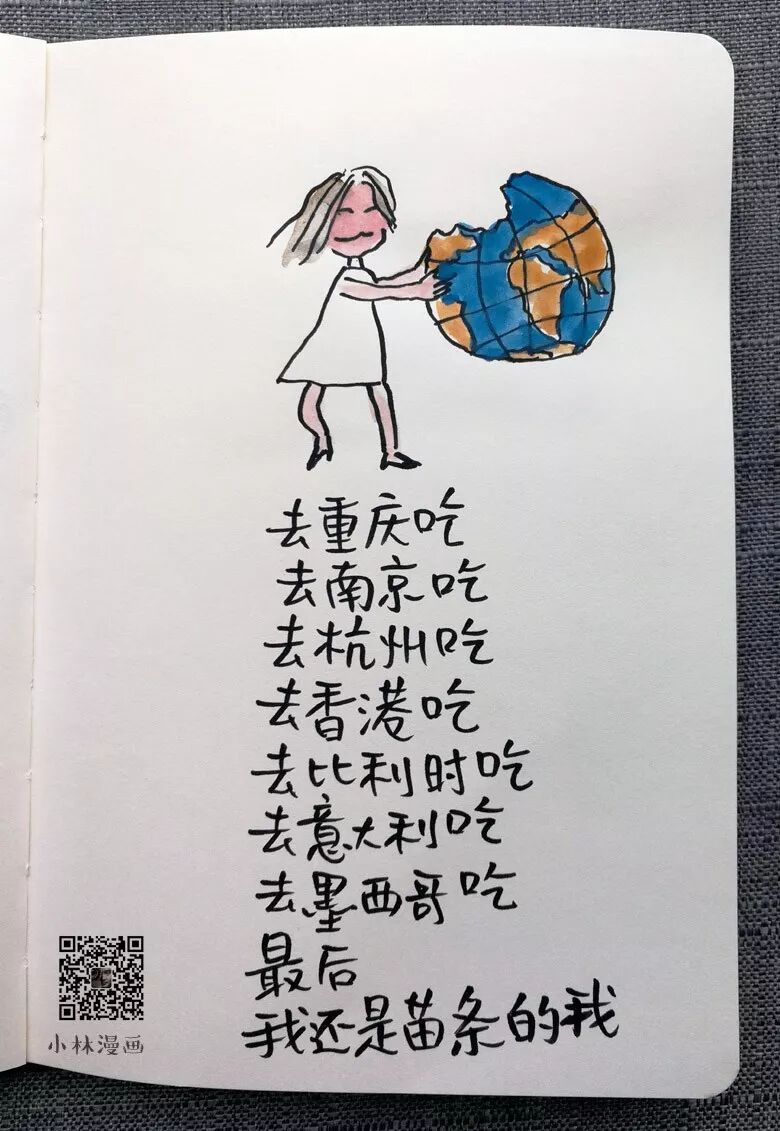 去重庆吃
去南京吃
去杭州吃
去香港吃
去比利时吃
去意大利吃
去墨西哥吃
最后
我还是苗条的我
小林漫画